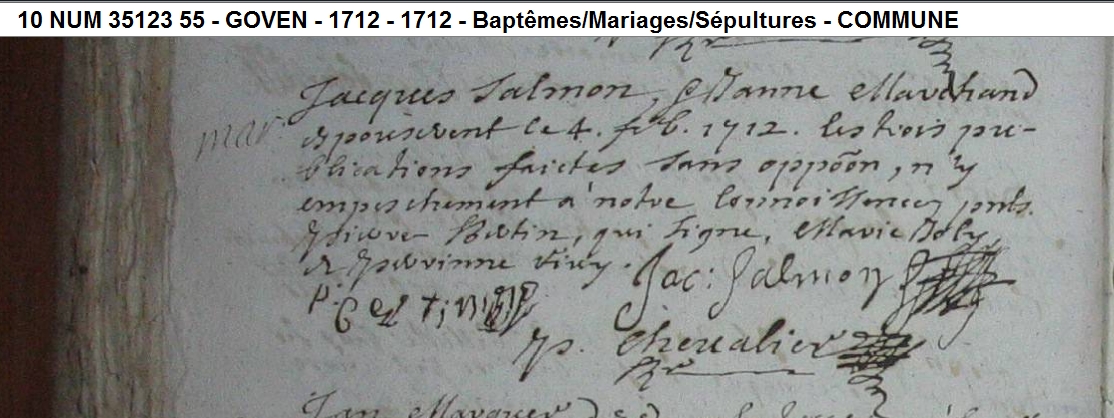 10 NUM 35123 55 - GOVEN - 1712 - 1712 - Baptêmes/Mariages/Sépultures - COMMUNE
mar.
Jacques Salmon, & Janne Marchand
epouserent le 4. feb. 1712. les trois pu-
blications faictes sans oppōon, n'y
empeschement a notre connoissence, pnts.
pierre Bertin, qui signe, Marie Joly
& perrinne
Jac: Salmon
p: Bertin
p. Chevalier
Rr
Jan